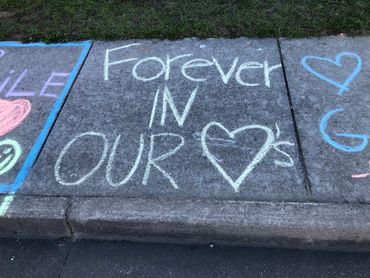 iLE
Forever
IN
OUR ♡'s